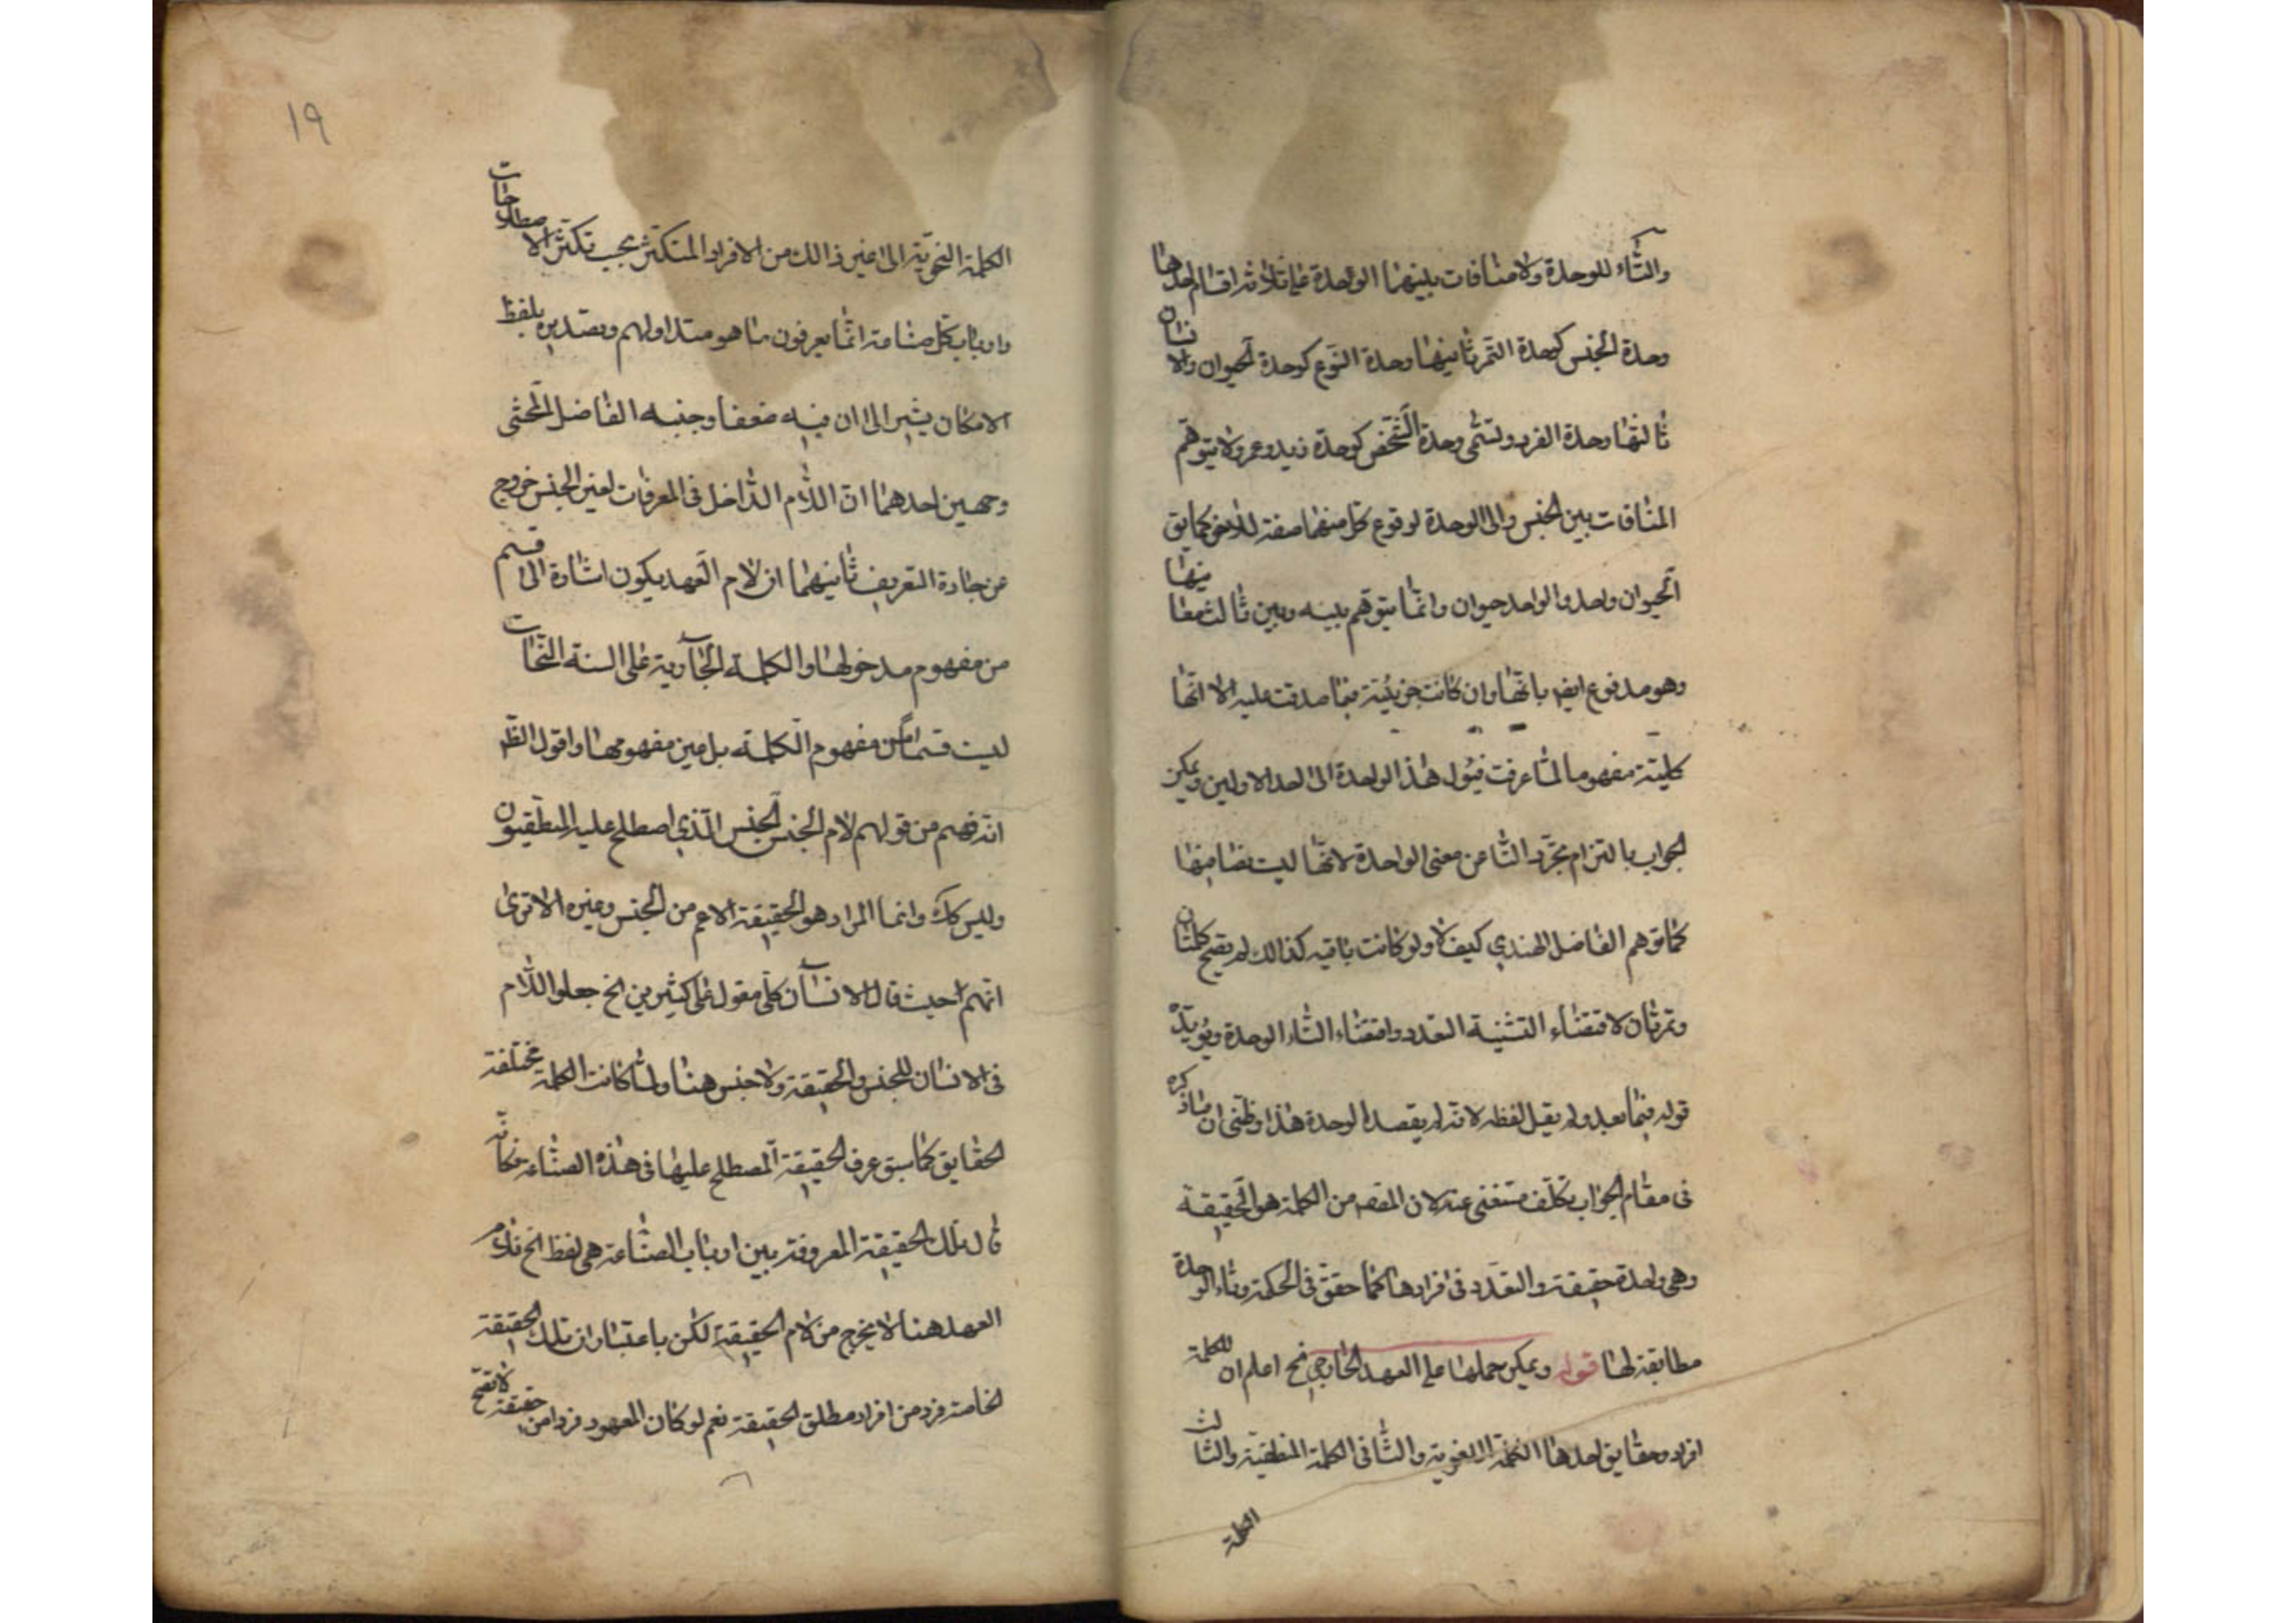 والتاء للوحدة ولا منافات بينهما الواحدة على ثلاثة اقسام احدها
وحدة الجنس كوحدة التمر ثانيها وحدة النوع كوحدة الحيوان والانسان
ثالثها وحدة الفرد وتسمى وحدة الشخص كوحدة زيد وعمرو ولا يتوهم
المنافات بين الجنس والى الوحدة لوقوع كل منهما صفة للاخر كما يق
الحيوان واحد والواحد حيوان وانما يتوهم بينه وبين ثالث معانيها
وهو مدفوع ايض بانها وان كانت جزئية فيما صدقت عليه الا انها
كلية مفهوما لما عرفت فيؤل هذا الواحدة الى احد الاولين ويمكن
الجواب بالتزام تجرد التا عن معنى الواحدة لانها ليست نصا فيها
كما توهم الفاضل الهندي كيف لا ولو كانت باقيه كذالك لم يصح كلمتان
وتمرتان لاقتضاء التثنية التعدد واقتضاء التاء الوحدة ويؤيده
قوله فيما بعد ولم يقل لفظه لانه لم يقصد الوحدة هذا وظني ان ماذكره
فى مقام الجواب تكلف مستغنى عنه لان المقصه من الكلمة هو الحقيقة
وهى واحدة حقيقة والتعدد فى افرادها كما حقق فى الحكمة وتاء الوحدة
مطابقة لها قوله ويمكن حملها على العهد الخارجي الخ اعلم ان للكلمة
افراد وحقايق احدها الكلمة اللغوية والثانى الكلمة المنطقية والثالث
الكلمة
١٩
الكلمة النحوية الى غير ذالك من الافراد المتكثرة بحسب تكثر الاصطلاحات
وارباب كل صناعة انما يعرفون ما هو متداولهم وتصديره بلفظ
الامكان يشير الى ان فيه ضعفا وجنبه الفاضل المحشى
وجهين احدهما ان اللام الداخل فى المعرفات لغير الجنس خروج
عن جادة التعريف ثانيهما ان لام العهد يكون اشارة الى قسم
من مفهوم مدخولها والكلمة الجارية على السنة النحات
ليست قسما من مفهوم الكلمة بل عين مفهومها واقول الظ
انه فهم من قولهم لام الجنس الجنس الذي اصطلح عليه المنطقيون
وليس كك وانما المراد هو الحقيقة الاعم من الجنس وغيره الا ترى
انهم حيث قال الانسان كلي مقول على كثيرين الخ جعلوا اللام
فى الانسان للجنس والحقيقة ولا جنس هنا ولما كانت الكلمة مختلفة
الحقايق كما سبق عرف الحقيقة المصطلح عليها فى هذه الصناعة فكانه
قال تلك الحقيقة المعروفة بين ارباب الصناعة هى لفظ الخ فلام
العهد هنا لا يخرج من لام الحقيقة لكن باعتبار ان تلك الحقيقة
الخاصة فرد من افراد مطلق الحقيقة نعم لو كان المعهود فردا من حقيقة لا تصح